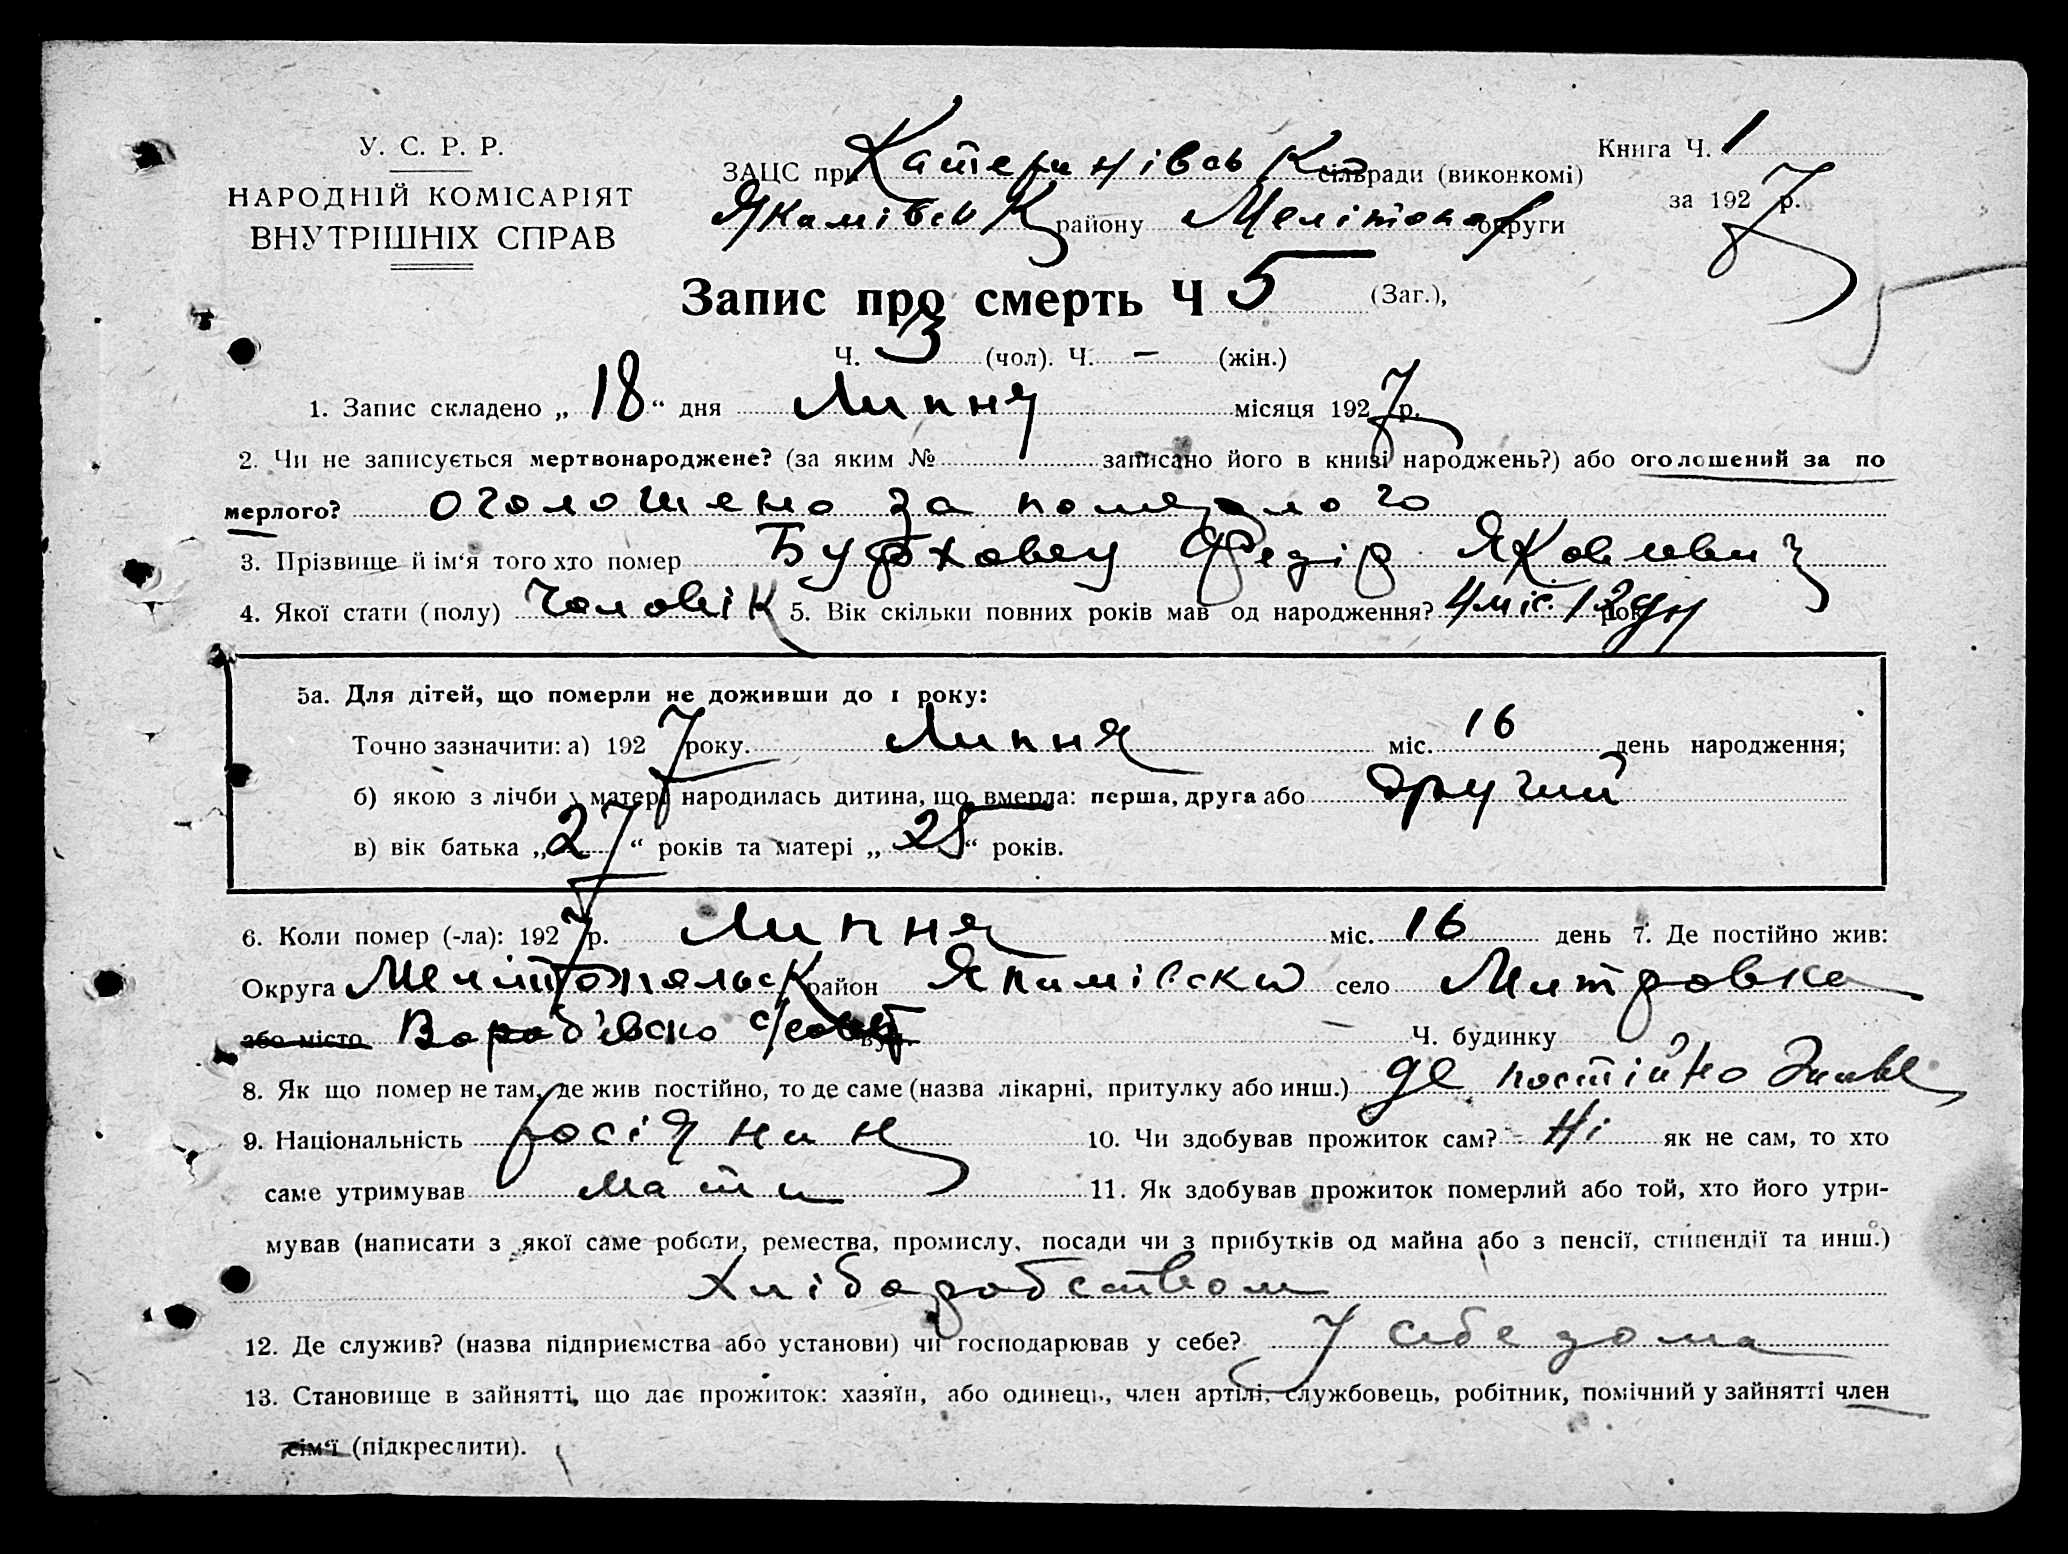 У. С. Р. Р.
НАРОДНІЙ КОМІСАРІЯТ
ВНУТРІШНІХ СПРАВ
ЗАЦС при Катеринівськ сільради (виконкомі)
Книга Ч. 1
Якимівськ району Мелітопол округи
за 1927 р.
Запис про смерть Ч 5 (Заг.),
Ч. 3 (чол). Ч. — (жін.)
1. Запис складено „ 18 “ дня Липня місяця 1927 р.
2. Чи не записується мертвонароджене? (за яким № записано його в книзі народжень?) або оголошений за по
мерлого? оголошено за померлого
3. Прізвище й ім‘я того хто помер Федір Яковлевич
4. Якої стати (полу) Чоловік 5. Вік скільки повних років мав од народження? 4 міс. 12 дн
5а. Для дітей, що померли не доживши до 1 року:
Точно зазначити: а) 1927 року. Липня міс. 16 день народження;
б) якою з лічби у матері народилась дитина, що вмерла: перша, друга або другий
в) вік батька „ 27 “ років та матері „ 25 “ років.
6. Коли помер (-ла): 1927 р. Липня міс. 16 день 7. Де постійно жив:
Округа Мелітопольск район Якимівски село Митровка
або місто Вороб'ївско с/совет вул. Ч. будинку
8. Як що помер не там, де жив постійно, то де саме (назва лікарні, притулку або инш.) де постійно живе
9. Національність росіянин 10. Чи здобував прожиток сам? Ні як не сам, то хто
саме утримував мати 11. Як здобував прожиток померлий або той, хто його утри-
мував (написати з якої саме роботи, ремества, промислу, посади чи з прибутків од майна або з пенсії, стипендії та инш.)
Хліборобством
12. Де служив? (назва підприємства або установи) чи господарював у себе? У себе дома
13. Становище в зайнятті, що дає прожиток: хазяїн, або одинець, член артілі, службовець, робітник, помічний у зайнятті член
сім‘ї (підкреслити).